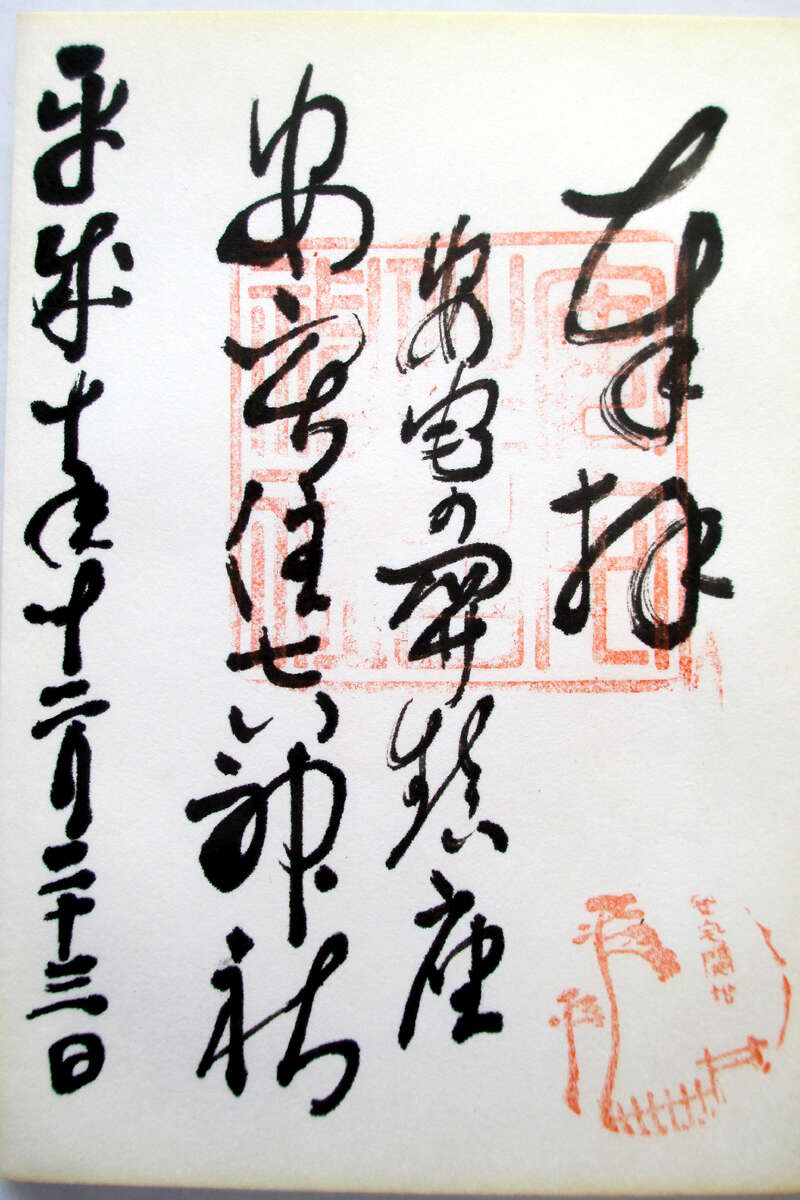 奉拝
安宅の関鎮座
安宅住吉神社
平成十年十二月二十三日
安宅住吉神社
安宅關址